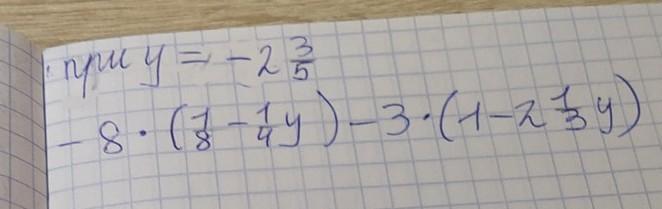 при y = -2 3/5
-8 · (1/8 - 1/4 y) - 3 · (1 - 2 1/3 y)